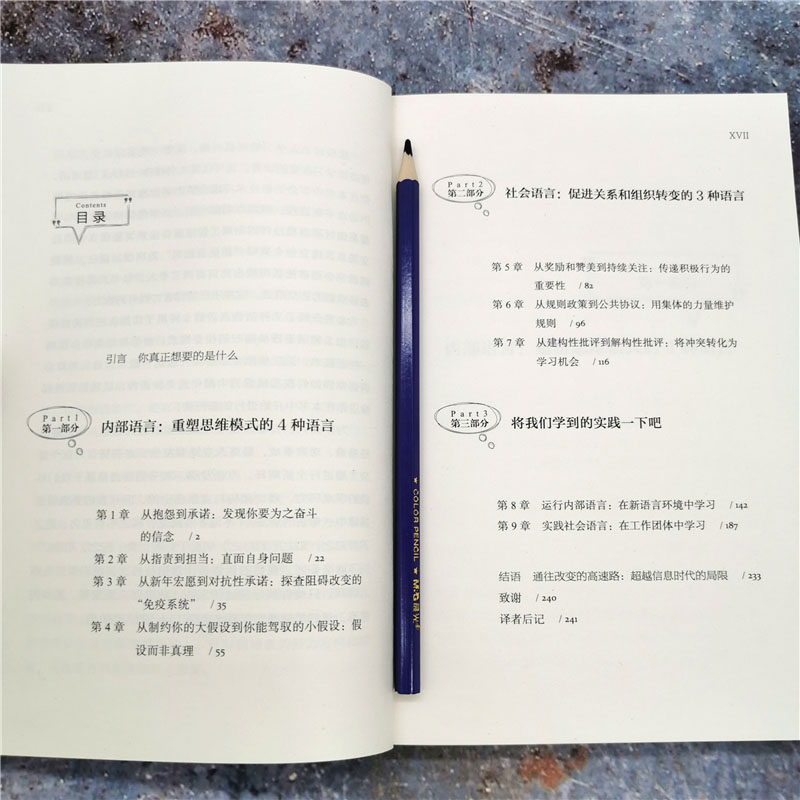 Contents
目录
引言 你真正想要的是什么
Part1
第一部分
内部语言：重塑思维模式的 4 种语言
第 1 章 从抱怨到承诺：发现你要为之奋斗
的信念 / 2
第 2 章 从指责到担当：直面自身问题 / 22
第 3 章 从新年宏愿到对抗性承诺：探查阻碍改变的
“免疫系统” / 35
第 4 章 从制约你的大假设到你能驾驭的小假设：假
设而非真理 / 55
COLOR PENCIL
M&G 晨光
XVII
Part2
第二部分
社会语言：促进关系和组织转变的 3 种语言
第 5 章 从奖励和赞美到持续关注：传递积极行为的
重要性 / 82
第 6 章 从规则政策到公共协议：用集体的力量维护
规则 / 96
第 7 章 从建构性批评到解构性批评：将冲突转化为
学习机会 / 116
Part3
第三部分
将我们学到的实践一下吧
第 8 章 运行内部语言：在新语言环境中学习 / 142
第 9 章 实践社会语言：在工作团体中学习 / 187
结语 通往改变的高速路：超越信息时代的局限 / 233
致谢 / 240
译者后记 / 241